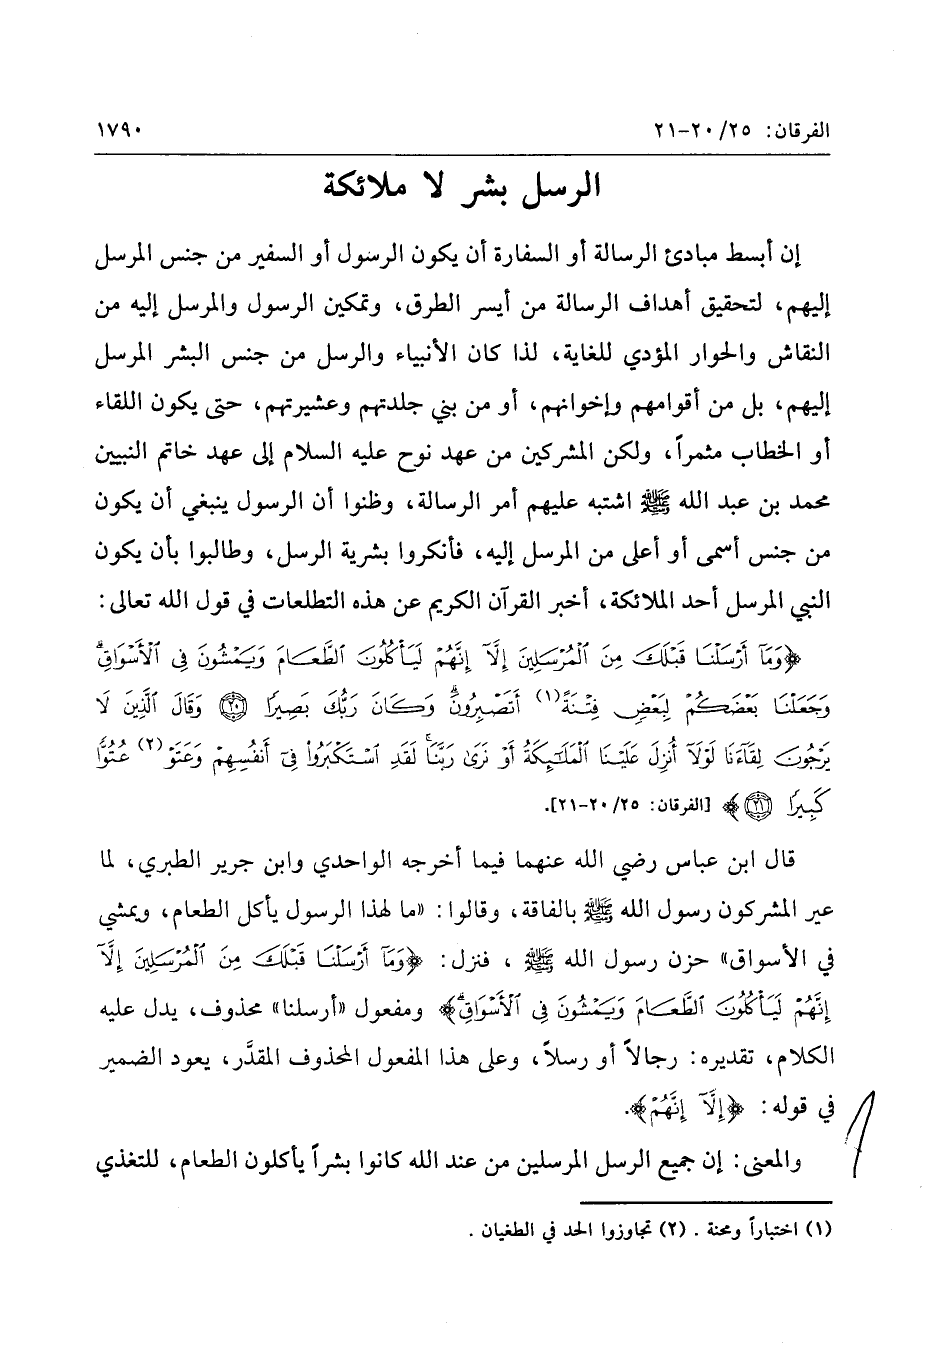 الفرقان: ٢٥/ ٢٠-٢١ ١٧٩٠
الرسل بشر لا ملائكة
إن أبسط مبادئ الرسالة أو السفارة أن يكون الرسول أو السفير من جنس المرسل
إليهم، لتحقيق أهداف الرسالة من أيسر الطرق، وتمكين الرسول والمرسل إليه من
النقاش والحوار المؤدي للغاية، لذا كان الأنبياء والرسل من جنس البشر المرسل
إليهم، بل من أقوامهم وإخوانهم، أو من بني جلدتهم وعشيرتهم، حتى يكون اللقاء
أو الخطاب مثمراً، ولكن المشركين من عهد نوح عليه السلام إلى عهد خاتم النبيين
محمد بن عبد الله ﷺ اشتبه عليهم أمر الرسالة، وظنوا أن الرسول ينبغي أن يكون
من جنس أسمى أو أعلى من المرسل إليه، فأنكروا بشرية الرسل، وطالبوا بأن يكون
النبي المرسل أحد الملائكة، أخبر القرآن الكريم عن هذه التطلعات في قول الله تعالى:
﴿وَمَآ أَرْسَلْنَا قَبْلَكَ مِنَ ٱلْمُرْسَلِينَ إِلَّآ إِنَّهُمْ لَيَأْكُلُونَ ٱلطَّعَامَ وَيَمْشُونَ فِي ٱلْأَسْوَاقِ ۗ
وَجَعَلْنَا بَعْضَكُمْ لِبَعْضٍ فِتْنَةً (١) أَتَصْبِرُونَ ۗ وَكَانَ رَبُّكَ بَصِيرًا ٢٠ وَقَالَ ٱلَّذِينَ لَا
يَرْجُونَ لِقَآءَنَا لَوْلَآ أُنزِلَ عَلَيْنَا ٱلْمَلَٰٓئِكَةُ أَوْ نَرَىٰ رَبَّنَا ۗ لَقَدِ ٱسْتَكْبَرُوا۟ فِىٓ أَنفُسِهِمْ وَعَتَوْ (٢) عُتُوًّا
كَبِيرًا ٢١﴾ [الفرقان: ٢٥/ ٢٠-٢١].
قال ابن عباس رضي الله عنهما فيما أخرجه الواحدي وابن جرير الطبري، لما
عير المشركون رسول الله ﷺ بالفاقة، وقالوا: «ما لهذا الرسول يأكل الطعام، ويمشي
في الأسواق» حزن رسول الله ﷺ ، فنزل: ﴿وَمَآ أَرْسَلْنَا قَبْلَكَ مِنَ ٱلْمُرْسَلِينَ إِلَّآ
إِنَّهُمْ لَيَأْكُلُونَ ٱلطَّعَامَ وَيَمْشُونَ فِي ٱلْأَسْوَاقِ ۗ﴾ ومفعول «أرسلنا» محذوف، يدل عليه
الكلام، تقديره: رجالاً أو رسلاً، وعلى هذا المفعول المحذوف المقدَّر، يعود الضمير
في قوله: ﴿إِلَّآ إِنَّهُمْ﴾.
والمعنى: إن جميع الرسل المرسلين من عند الله كانوا بشراً يأكلون الطعام، للتغذي
(١) اختباراً ومحنة . (٢) تجاوزوا الحد في الطغيان .